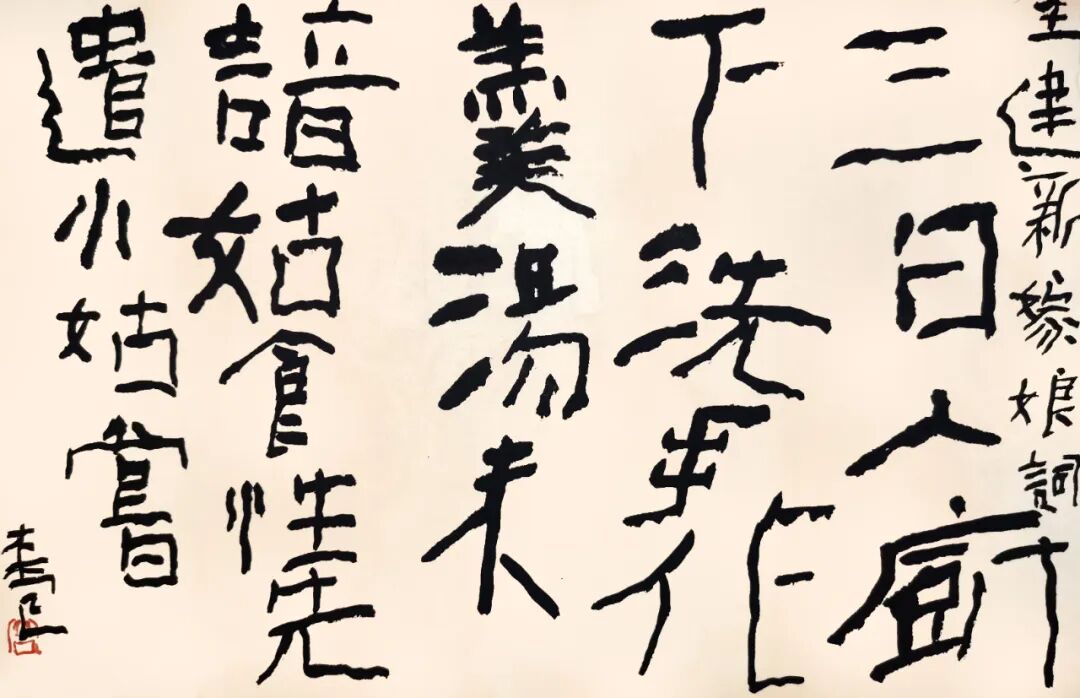 王建新嫁娘詞
三日入廚
下洗手作
羹湯未
諳姑食性先
遣小姑嘗